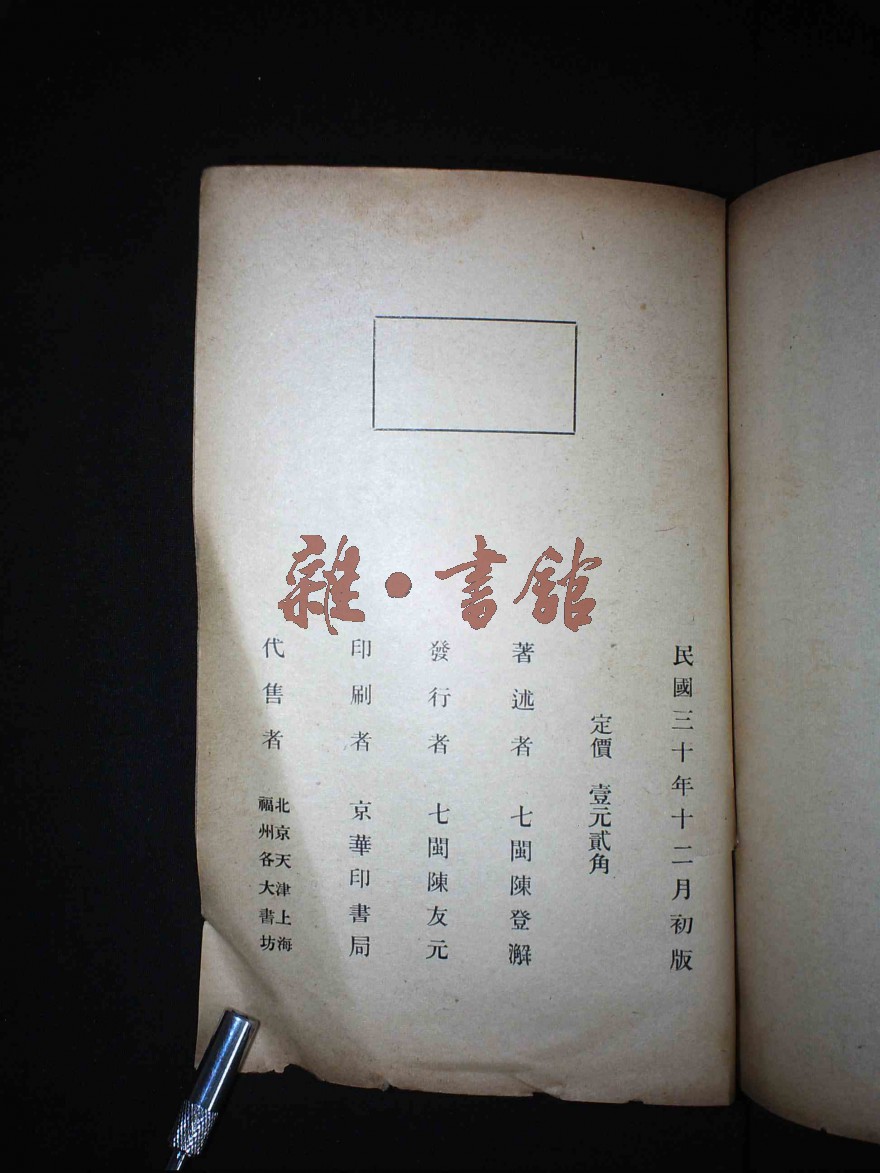 民國三十年十二月初版
定價 壹元貳角
著述者 七閩陳登澥
發行者 七閩陳友元
印刷者 京華印書局
代售者 北京天津上海
福州各大書坊
雜·書館